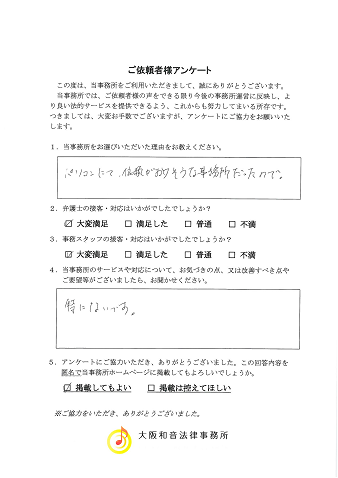 ご依頼者様アンケート
この度は、当事務所をご利用いただきまして、誠にありがとうございます。
当事務所では、ご依頼者様の声をできる限り今後の事務所運営に反映し、よ
り良い法的サービスを提供できるよう、これからも努力してまいる所存です。
つきましては、大変お手数でございますが、アンケートにご協力をお願いいた
します。
1．当事務所をお選びいただいた理由をお教えください。
パソコンにて、信頼がおけそうな事務所だったので。
2．弁護士の接客・対応はいかがでしたでしょうか？
☑ 大変満足 □ 満足した □ 普通 □ 不満
3．事務スタッフの接客・対応はいかがでしたでしょうか？
☑ 大変満足 □ 満足した □ 普通 □ 不満
4．当事務所のサービスや対応について、お気づきの点、又は改善すべき点や
ご要望等がございましたら、お聞かせください。
特にないです。
5．アンケートにご協力いただき、ありがとうございました。この回答内容を
匿名で当事務所ホームページに掲載してもよろしいでしょうか。
☑ 掲載してもよい □ 掲載は控えてほしい
※ご協力をいただき、ありがとうございました。
大阪和音法律事務所